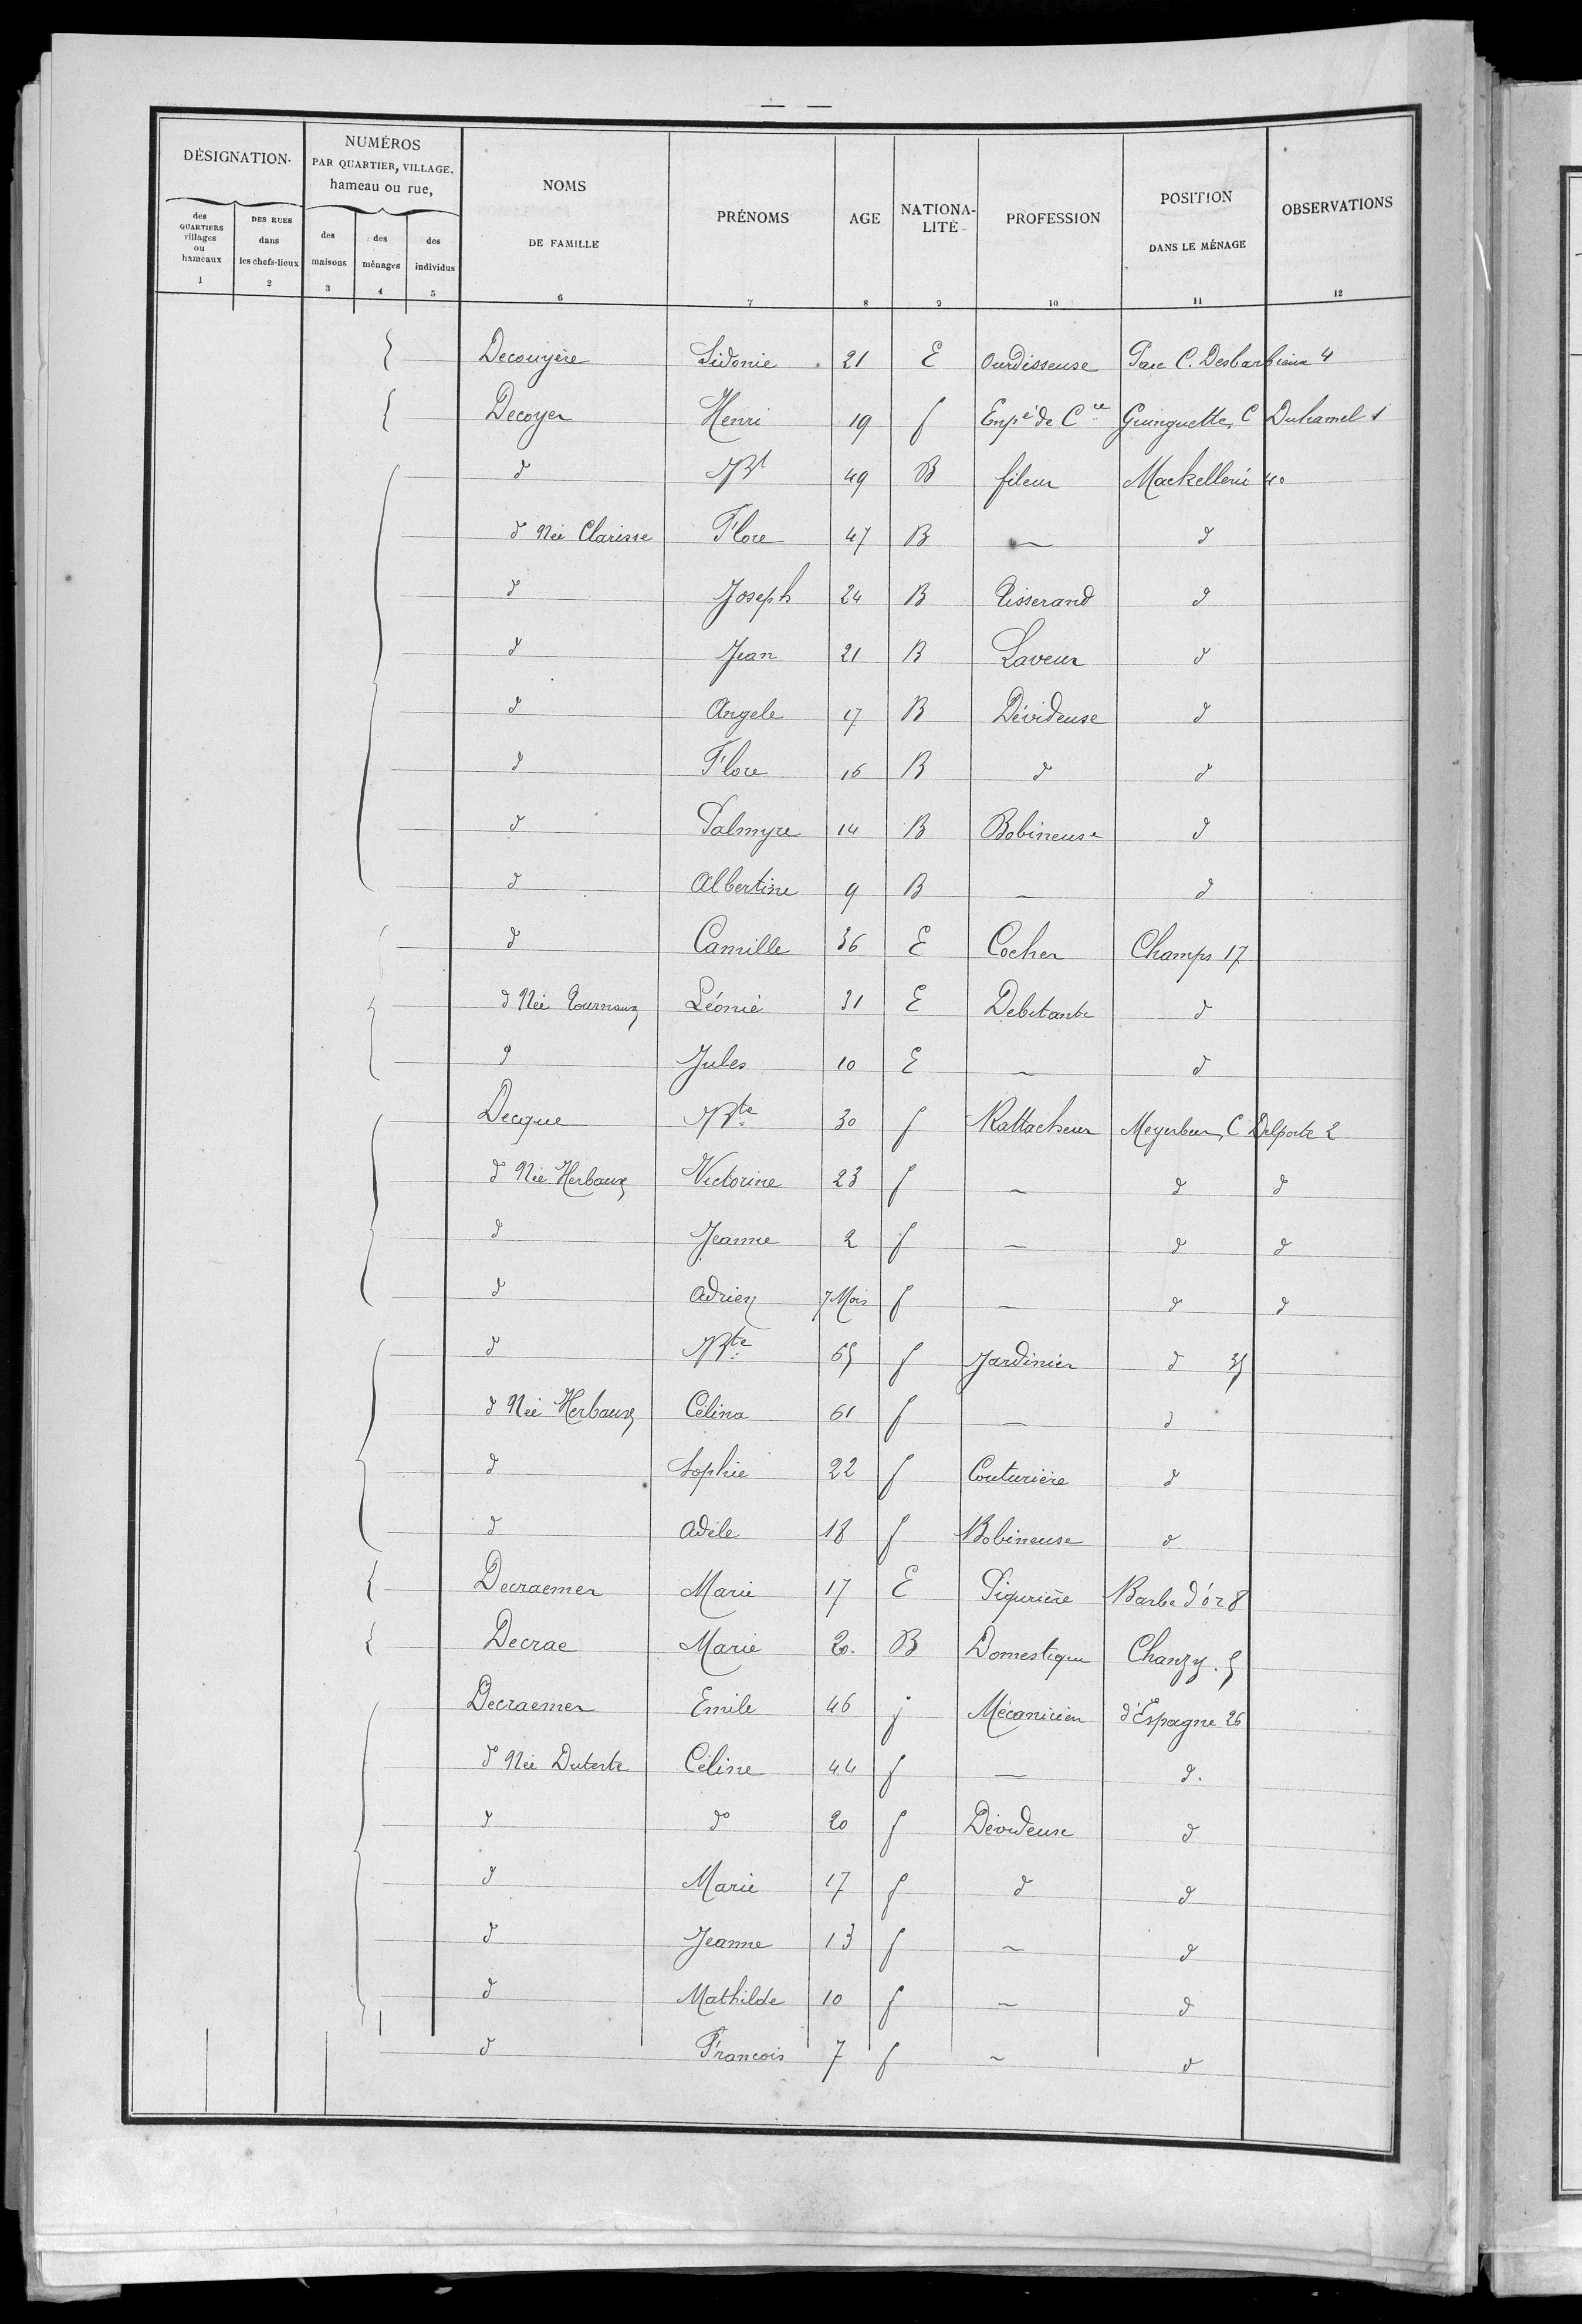 DÉSIGNATION.
NUMÉROS
PAR QUARTIER, VILLAGE,
hameau ou rue,
NOMS
DE FAMILLE
PRÉNOMS
AGE
NATIONA-
LITÉ
PROFESSION
POSITION
DANS LE MÉNAGE
OBSERVATIONS
des
QUARTIERS
villages
ou
hameaux
DES RUES
dans
les chefs-lieux
des
maisons
des
ménages
des
individus
1 2 3 4 5 6 7 8 9 10 11 12
Decouyère Sidonie 21 E Ourdisseuse Parc C. Desbarbieux 4
Decoyer Henri 19 f Empé de Cce Guinguette, C Duhamel 1
d Bt 49 B fileur Mackellerie 40
d Née Clarisse Flore 47 B — d
d Joseph 24 B Tisserand d
d Jean 21 B Laveur d
d Angele 17 B Dévideuse d
d Flore 16 B d d
d Palmyre 14 B Bobineuse d
d Albertine 9 B — d
d Camille 36 E Cocher Champs 17
d Née Tournaux Léonie 31 E Debitante d
d Jules 10 E — d
Decque Bte 30 f Rattacheur Meyerbeer, C Delporte 2
d Née Herbaux Victorine 23 f — d d
d Jeanne 2 f — d d
d Adrien 7 Mois f — d d
d Bte 65 f Jardinier d 35
d Née Herbaux Célina 61 f — d
d Sophie 22 f Couturière d
d Adèle 18 f Bobineuse d
Decraemer Marie 17 E Piqurière Barbe d'or 8
Decrae Marie 20. B Domestique Chanzy. 5
Decraemer Emile 46 f Mécanicien d'Espagne 26
d Née Duterte Céline 44 f — d.
d do 20 f Dévideuse d
d Marie 17 f d d
d Jeanne 13 f — d
d Mathilde 10 f — d
d Francois 7 f — d